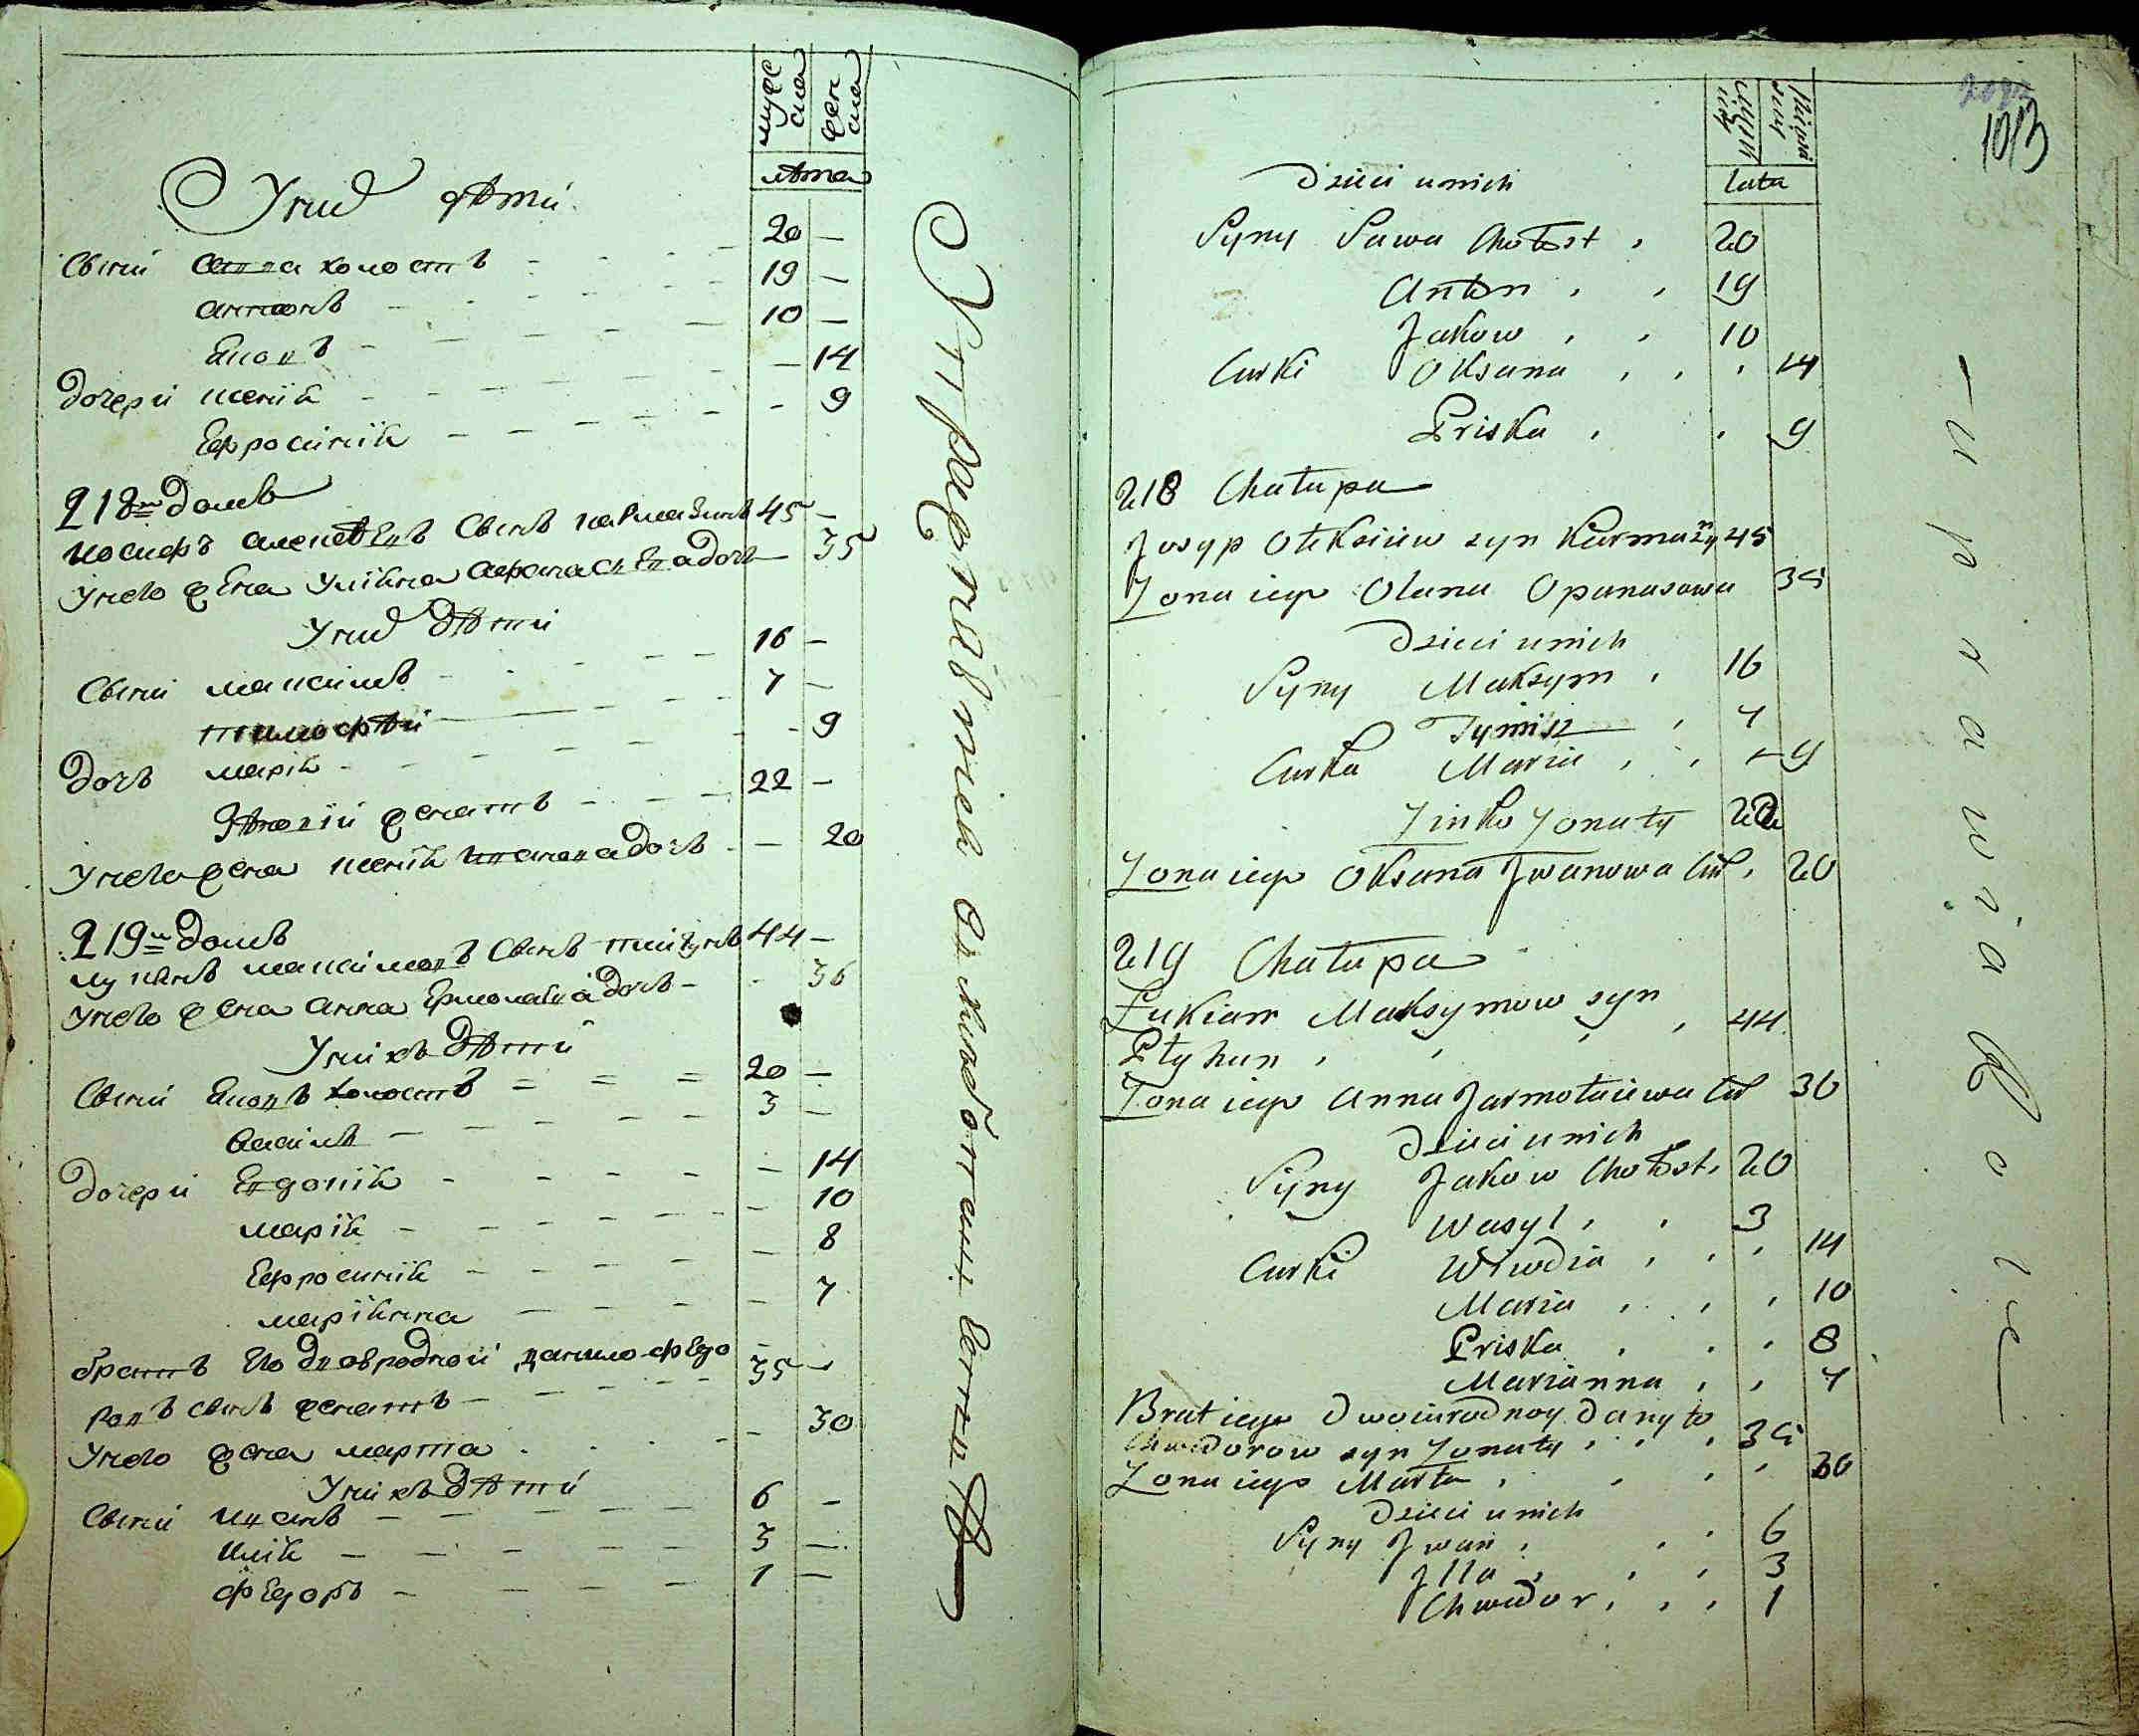 мужс
ска
жен
ска
лѣта
У них дѣти
Сыны Савва холостъ 20 —
антонъ 19 —
Яковъ 10 —
дочери ксенія — 14
Евросинія — 9
218 домъ
Иосифъ алексѣевъ Сынъ кармазинъ 45 —
У нево жена Уліяна афанасіева дочь — 35
У них дѣти
Сыны максимъ 16 —
тимофѣй 7 —
дочь марія — 9
женатъ 22 —
У нево жена ксенія иванова дочь — 20
219 домъ
лукянъ максимовъ Сынъ 44 —
У нево жена анна Ермолаева дочь — 36
У нихъ дѣти
Сыны Яковъ холостъ 20 —
василь 3 —
дочери Евдокія — 14
марія — 10
Евросинія — 8
маріянна — 7
братъ Его двоюродной данило федо
ровъ сынъ женатъ 35 —
У нево жена марта — 30
У нихъ дѣти
Сыны иванъ 6 —
илія 3 —
федоръ 1 —
1013
lata
Dzieci u nich
Syny Sawa Chołost 20
Anton 19
Jakow 10
Curki Oksana 14
Priska 9
218 Chałupa
Josyp Ołeksiiew syn Karmazyn 45
Zona iego Olana Opanasowa 35
Dzieci u nich
Syny Maksym 16
Tymisz 7
Curka Maria 9
Zinko Zonaty 22
Zona iego Oksana Jwanowa Cur 20
219 Chałupa
Łukian Maksymow syn
Płyhun 44
Zona iego Anna Jarmołaiewa Cur 36
Dzieci u nich
Syny Jakow Chołost 20
Wasyl 3
Curki Wiwdia 14
Maria 10
Priska 8
Marianna 7
Brat iego Dwoiurodnoy Danyło
Chwedorow syn Zonaty 35
Zona iego Marta 30
Dzieci u nich
Syny Jwan 6
Jlla 3
Chwedor 1